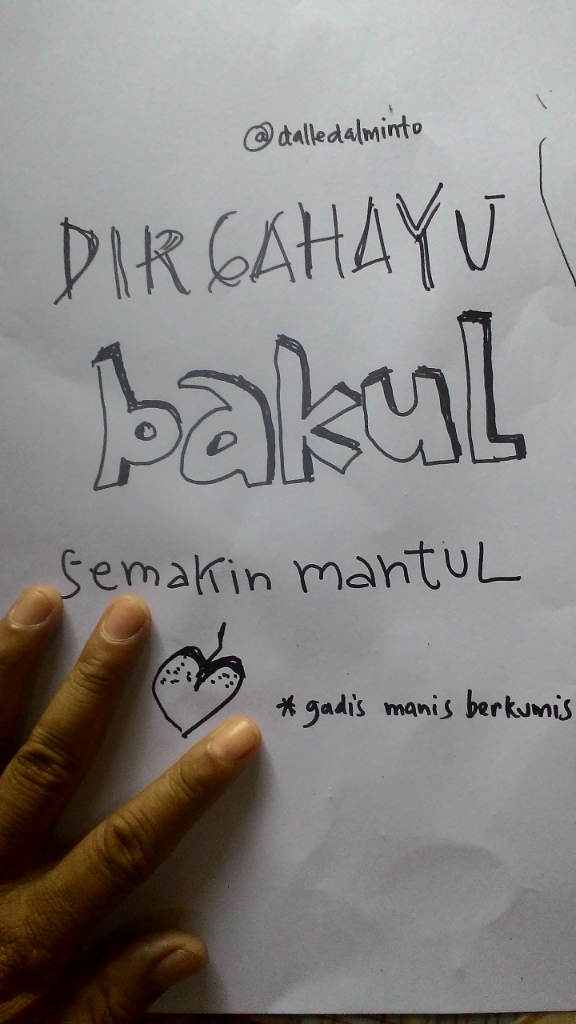 @dalledalminto
DIRGAHAYU
bakul
semakin mantul
* gadis manis berkumis